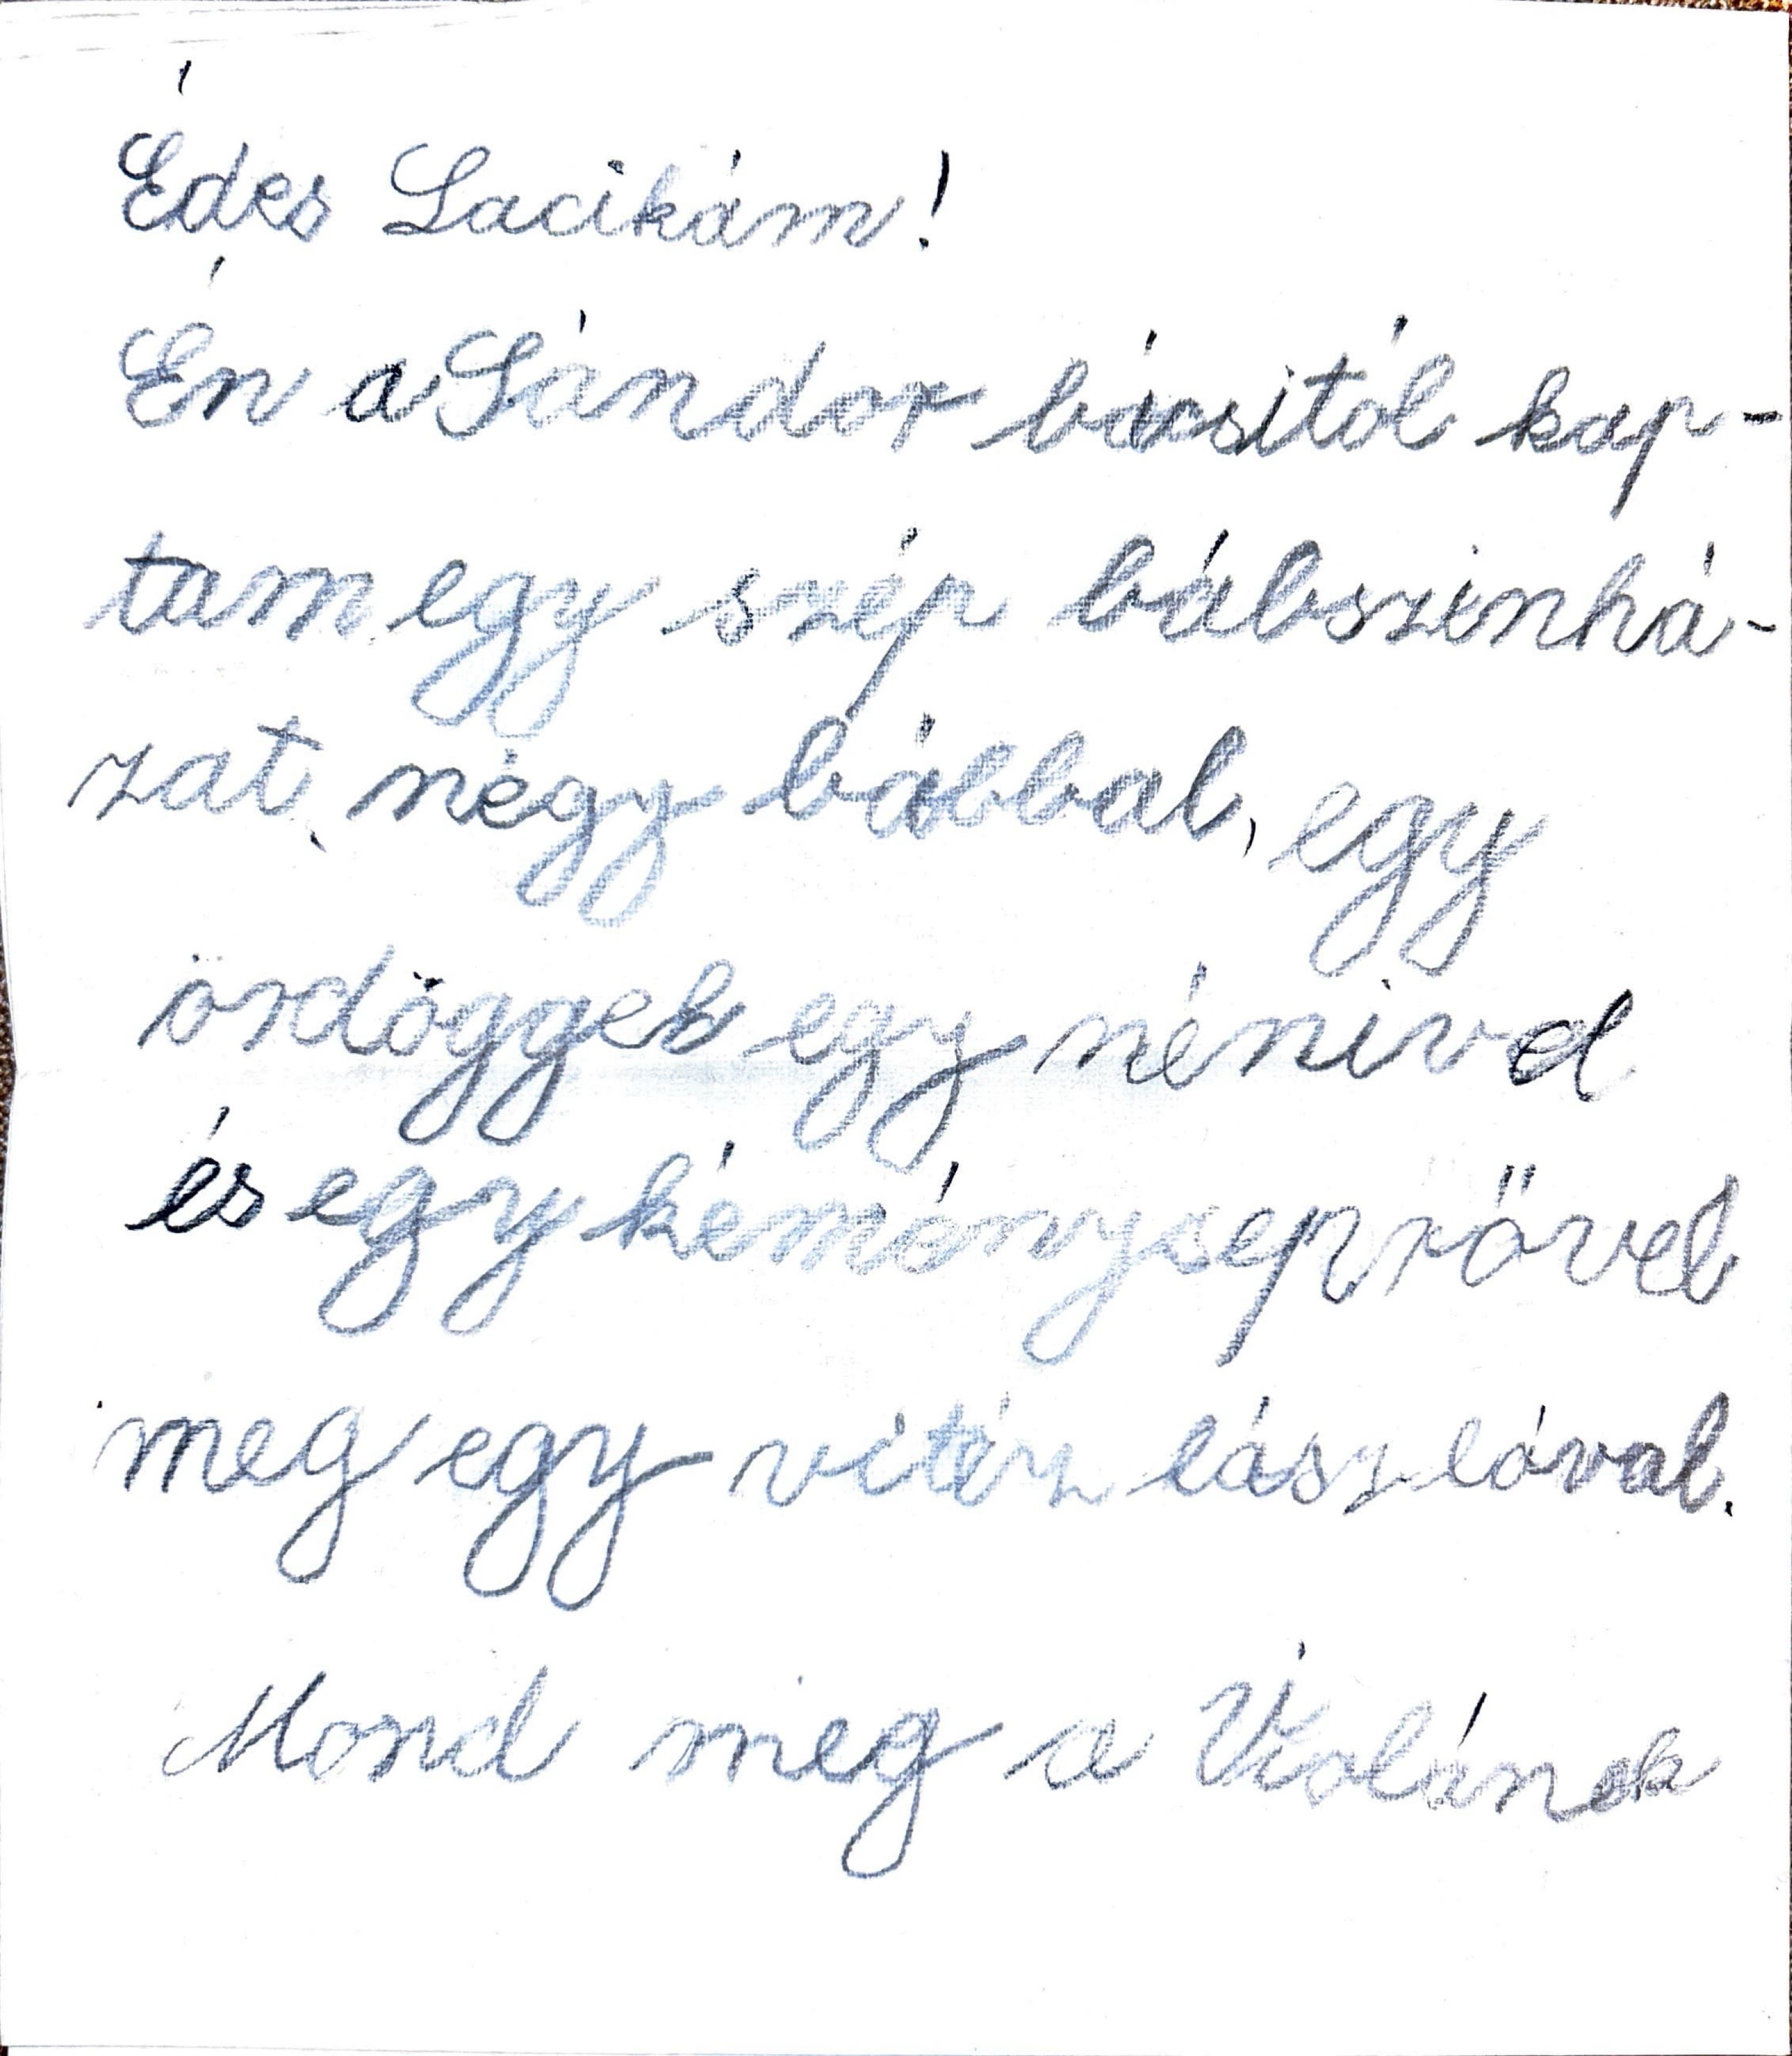 Édes Lacikám!
Én a Sándor bácsitól kap-
tam egy szép bábszinhá-
zat, négy bábbal, egy
ördöggel egy nénivel
és egy kéményseprövel
meg egy vitéz lászlóval.
Mond meg a Violának